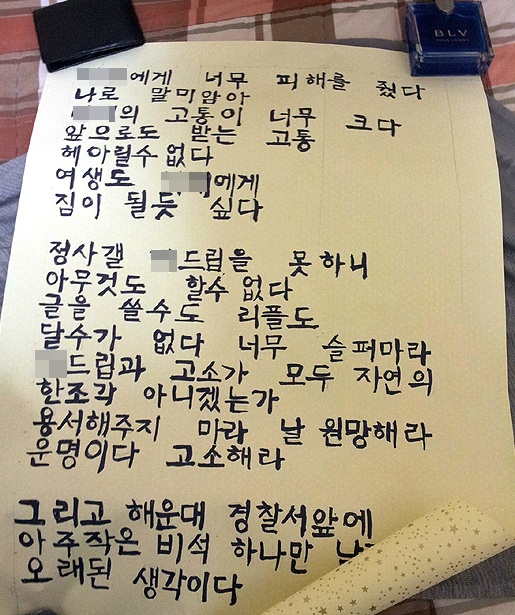 에게 너무 피해를 줬다
나로 말미암아
의 고통이 너무 크다
앞으로도 받는 고통
헤아릴수 없다
여생도 에게
짐이 될듯 싶다
정사갤 드립을 못하니
아무것도 할수 없다
글을 쓸수도 리플도
달수가 없다 너무 슬퍼마라
드립과 고소가 모두 자연의
한조각 아니겠는가
용서해주지 마라 날 원망해라
운명이다 고소해라
그리고 해운대 경찰서앞에
아주작은 비석 하나만
오래된 생각이다
BLV